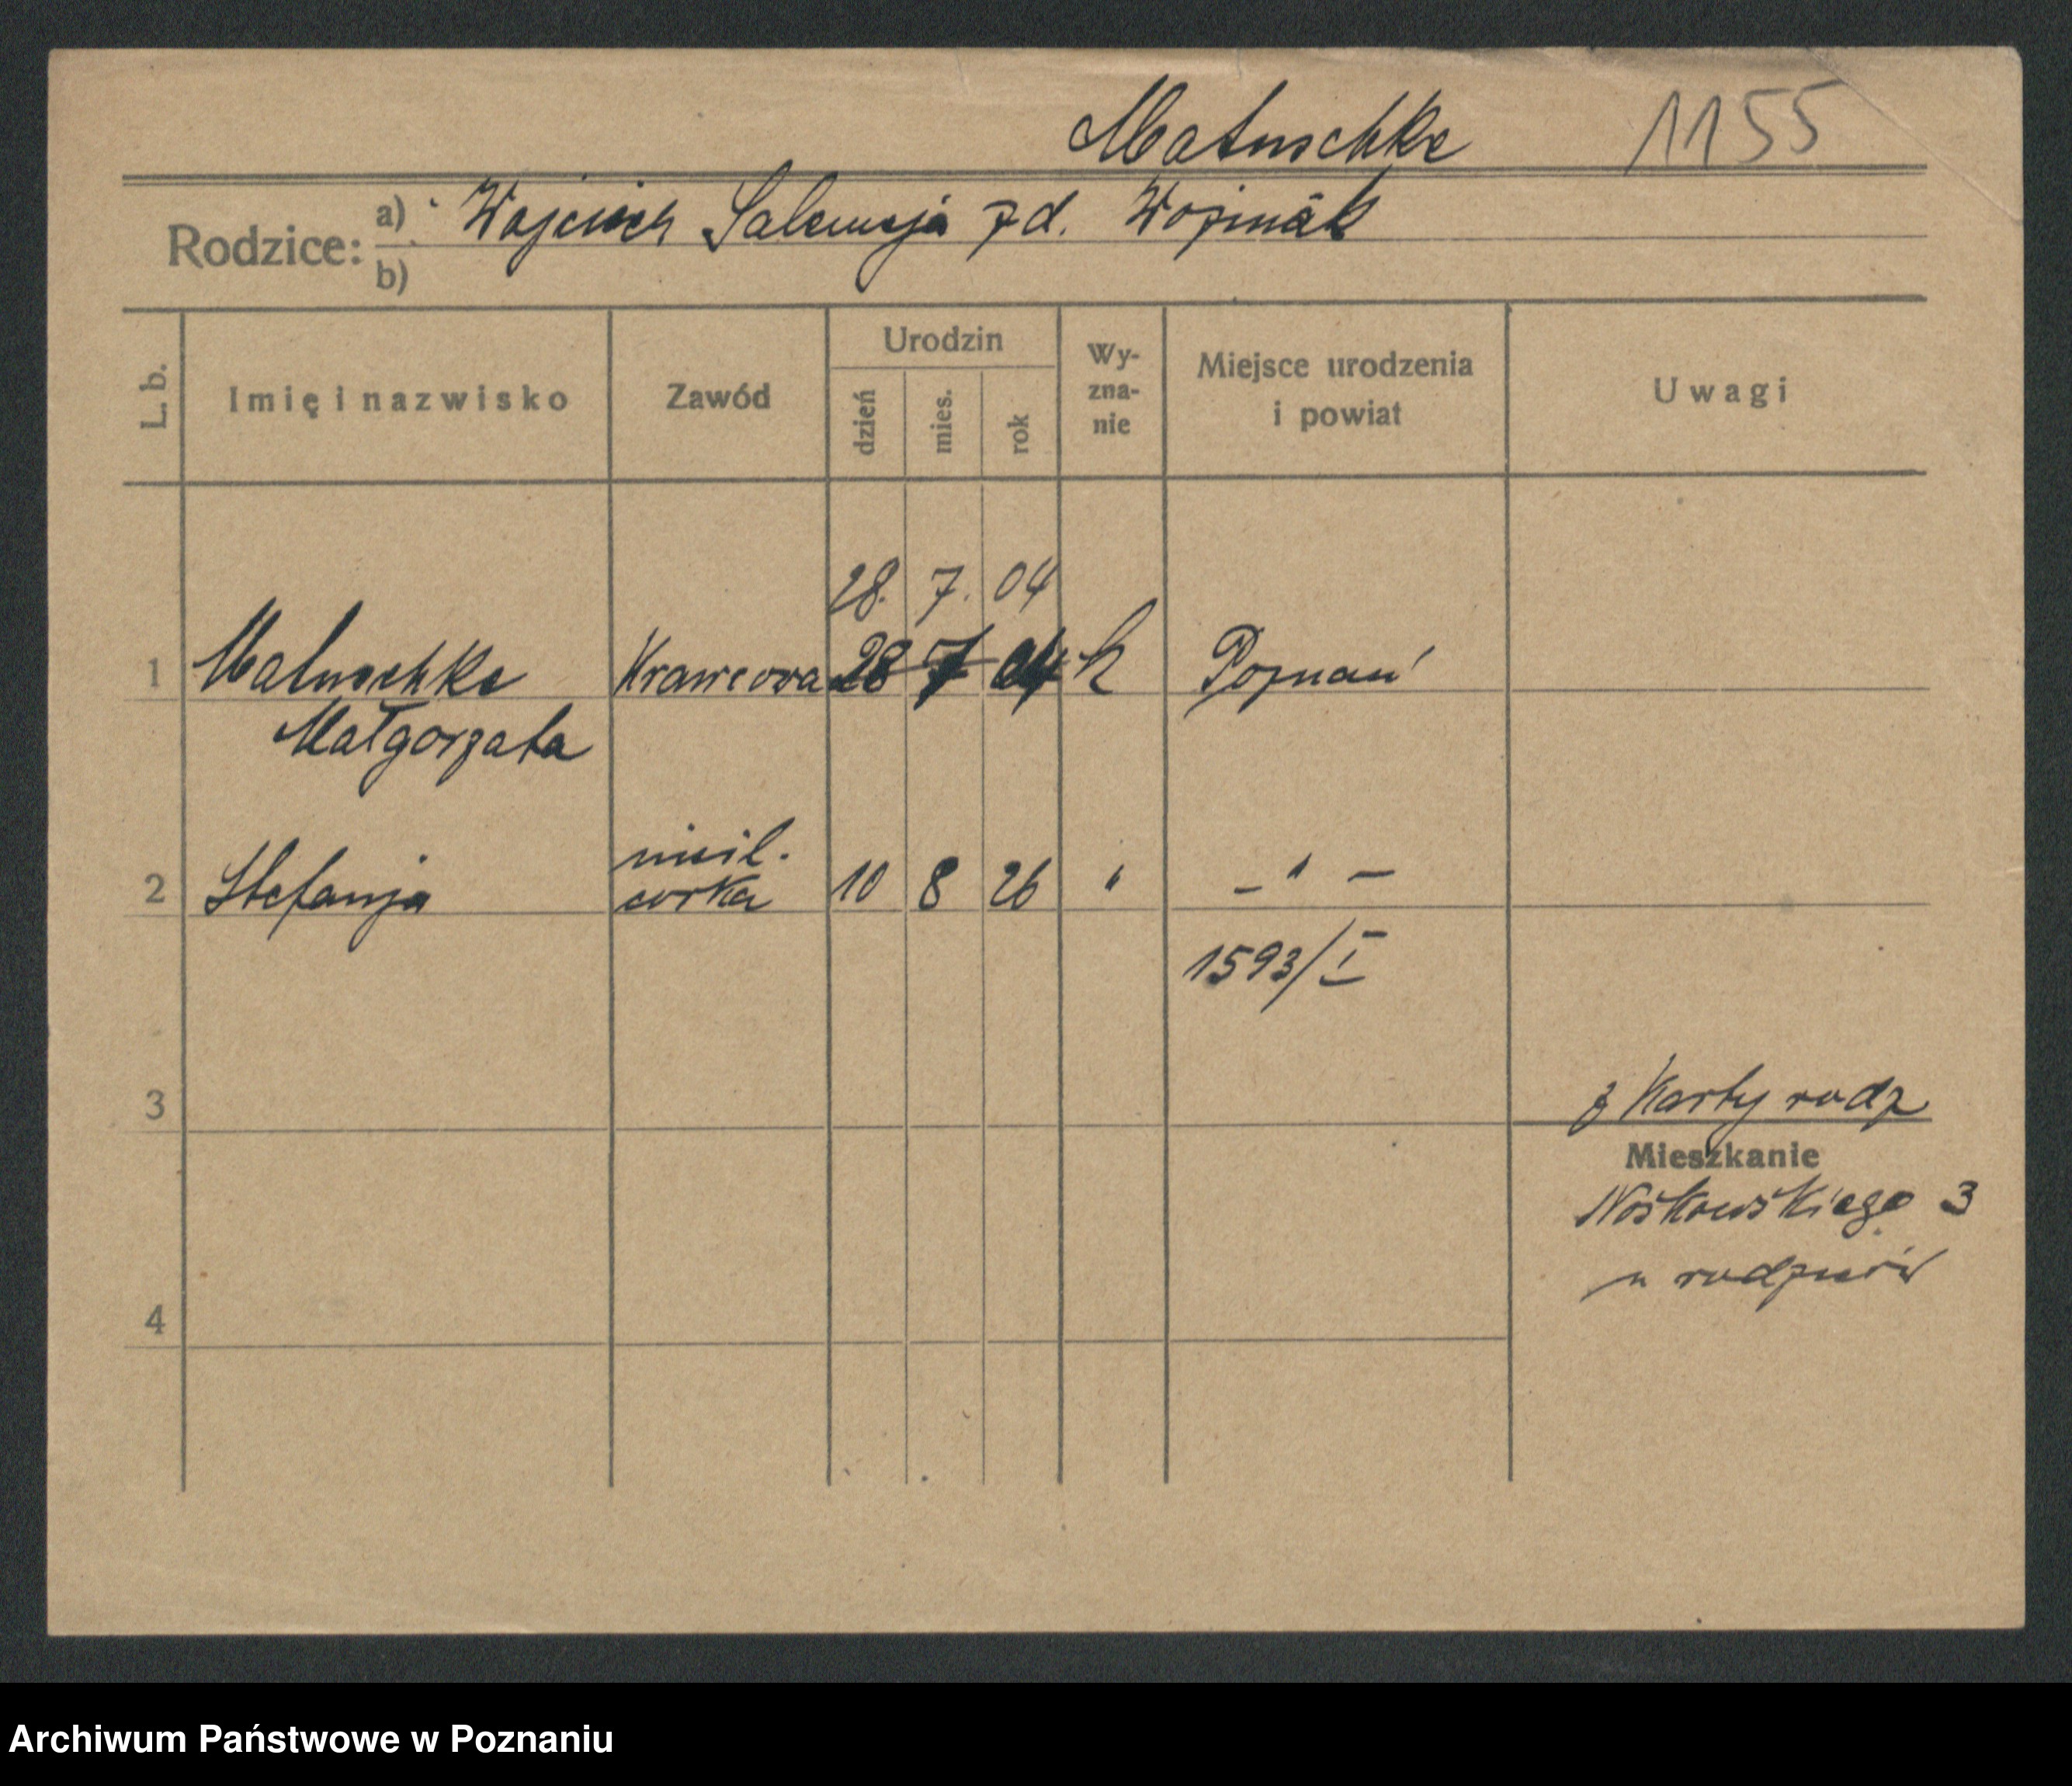 Matuschke 1155
Rodzice: a) Wojciech Salomeja z d. Woźniak
b)
L. b. Imię i nazwisko Zawód Urodzin dzień mies. rok Wy-zna-nie Miejsce urodzenia i powiat Uwagi
28. 7. 04
1 Matuschke Krawcowa 28 7 04 k Poznań
Małgorzata
nieśl.
2 Stefanja córka 10 8 26 " – " –
1593/I
3 z Karty rodz
Mieszkanie
Noskowskiego 3
u rodziców
4
Archiwum Państwowe w Poznaniu